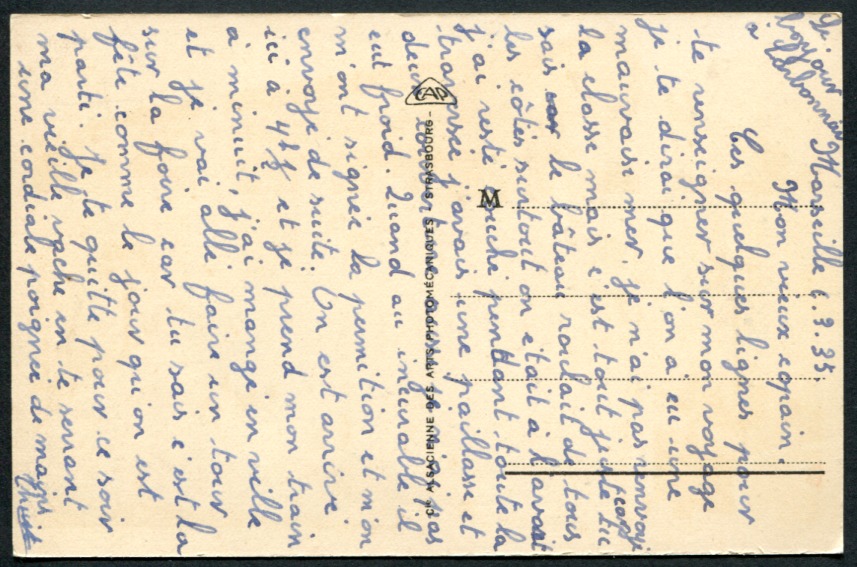 Marseille 6.9.35
Mon vieux copain.
Ces quelques lignes pour
te renseigner sur mon voyage
je te dirai que l'on a eu une
mauvaise mer, je n'ai pas renvoyé
la classe mais c'est tout juste car
sais le bâteau roulait de tous
les côtés surtout on était à l'avant
j'ai resté couché pendant toute la
traversée j'avais une paillasse et
pas
eut froid. Quand au il
m'ont signée la permition et m'on
envoyé de suite. On est arrivé
ici à 4h½ et je prend mon train
à minuit, j'ai mangé en ville
et je vai allé faire un tour
sur la foire car tu sais c'est la
fête comme le jour qu'on est
parti. Je te quitte pour ce soir
ma vieille vache en te serrant
une cordiale poignée de mains
à
CAP
Cie ALSACIENNE DES ARTS PHOTOMÉCANIQUES - STRASBOURG -
M